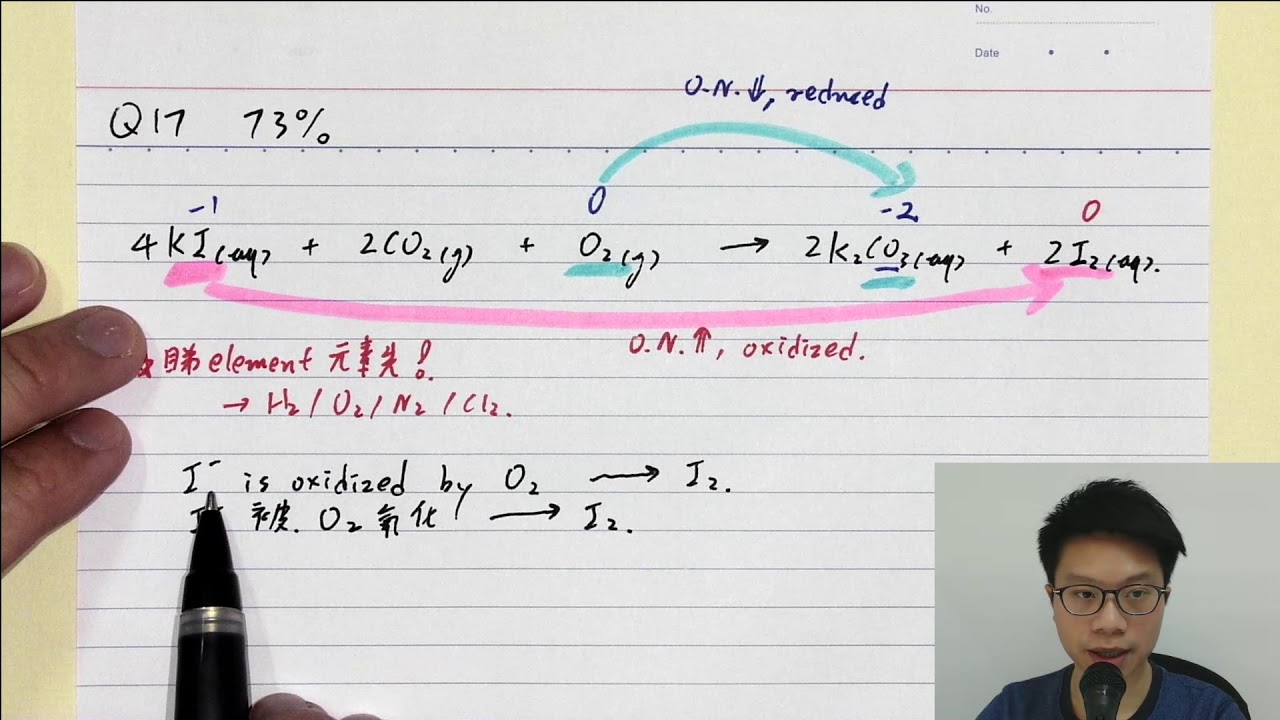 No.
Date
O.N.⇓, reduced
Q17 73%
-1 0 -2 0
4KI(aq) + 2CO2(g) + O2(g) → 2K2CO3(aq) + 2I2(aq).
O.N.⇑, oxidized.
睇element 元素先!
→ H2 / O2 / N2 / Cl2.
I⁻ is oxidized by O2 → I2.
I⁻ 被 O2 氧化 → I2.